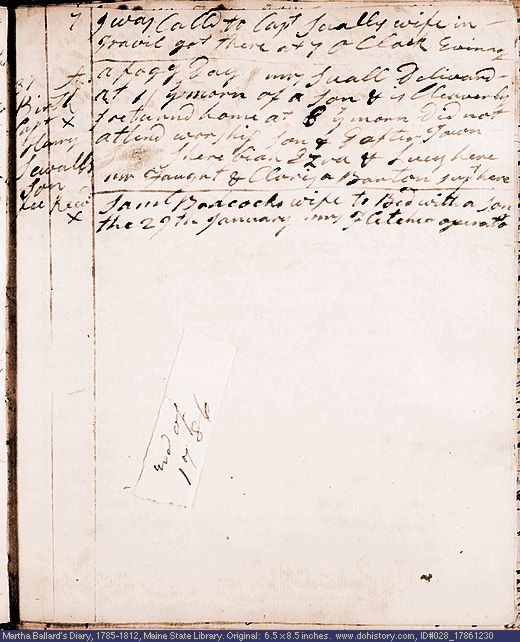 7 I was Calld to Capt Sualls wife in
travil got there at 7 O Clock Evinng
a fogg Day mrs Suall Delivard
Birth at 1 h morn of a Son & is Cleverly
Capt x I returnd home at 8 h morn Did not
Henry attend worship Son &
Sewalls here & here
Son mr & a Barton
fee Recd Saml Babcocks wife to Bed with a Son
x the 29th January mrs Fletcher operato
end of
1786
Martha Ballard's Diary, 1785-1812, Maine State Library. Original: 6.5 x 8.5 inches. www.dohistory.com, ID#028_17861230